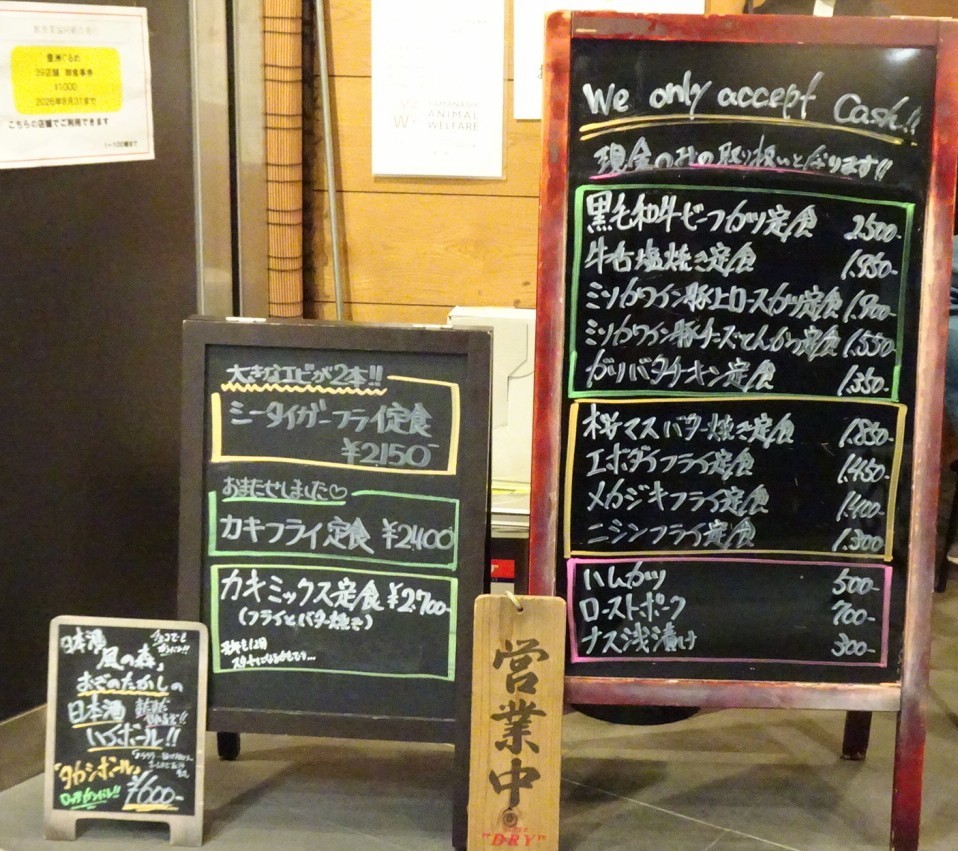 豊洲ぐるめ
39店舗 御食事券
¥1000
2026年8月31まで
こちらの店舗でご利用できます
YAMANASHI
ANIMAL
WELFARE
We only accept Cash!!
現金のみの取り扱いとなります!!
黒毛和牛ビーフカツ定食 2.500-
牛舌塩焼き定食 1.950-
ミソカワイン豚上ロースカツ定食 1.900-
ミソカワイン豚チーズてんかつ定食 1.550-
ガリバタチキン定食 1.350-
桜マスバター焼き定食 1.850-
エボダイフライ定食 1.450-
メカジキフライ定食 1.400-
ニシンフライ定食 1.300-
ハムカツ 500-
ローストポーク 700-
ナス浅漬け 300-
大きなエビが2本!!
シータイガーフライ定食
¥2150-
おまたせしました♡
カキフライ定食 ¥2400
カキミックス定食 ¥2.700-
(フライとバター焼き)
日本酒
「風の森」
おぎのたかしの
日本酒
ハイボール!!
「タカシボール」
¥600-
営業中
"DRY"